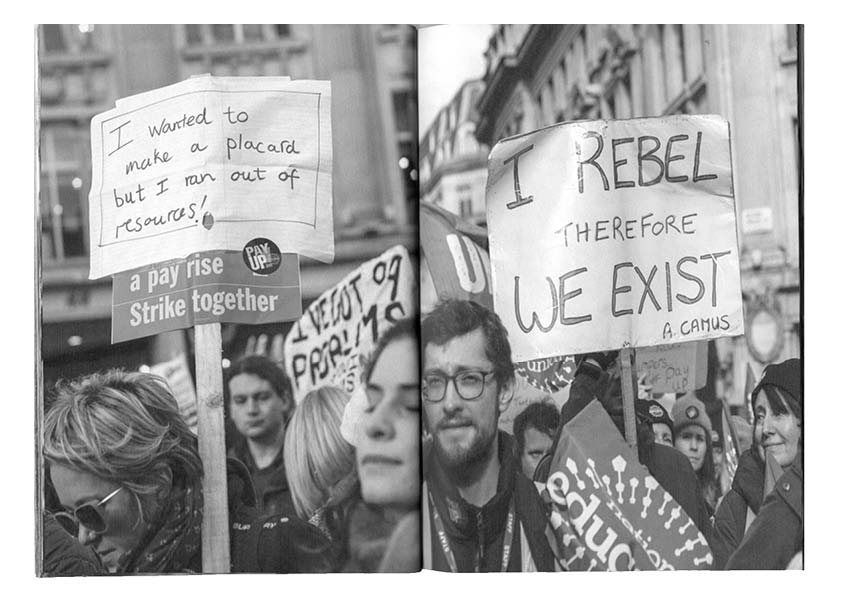 I wanted to
make a placard
but I ran out of
resources!
PAY
UP
a pay rise
Strike together
I'VE GOT 99
PROBLEMS
U
I REBEL
THEREFORE
WE EXIST
A. CAMUS
Pay up
national
educ
STAFF
STAFF